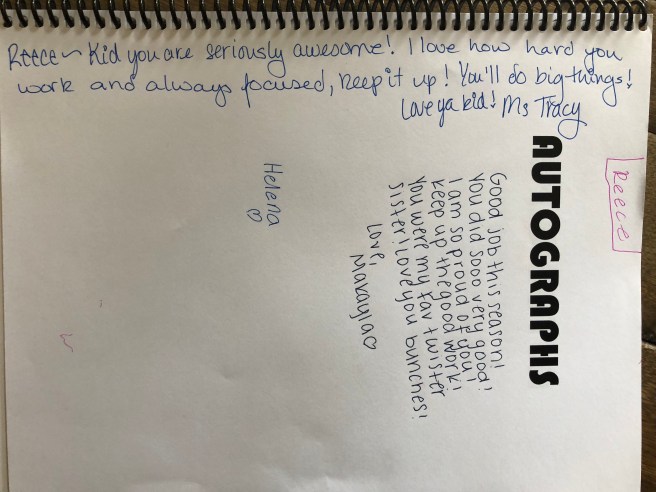 Reece ~ Kid you are seriously awesome! I love how hard you
work and always focused, keep it up! You'll do big things!
Love ya kid! Ms Tracy
Reece
AUTOGRAPHS
Good job this season!
You did sooo very good!
I am so proud of you!
Keep up the good work!
You were my fav twister
sister! I love you bunches!
Love,
Makayla♡
Helena
♡